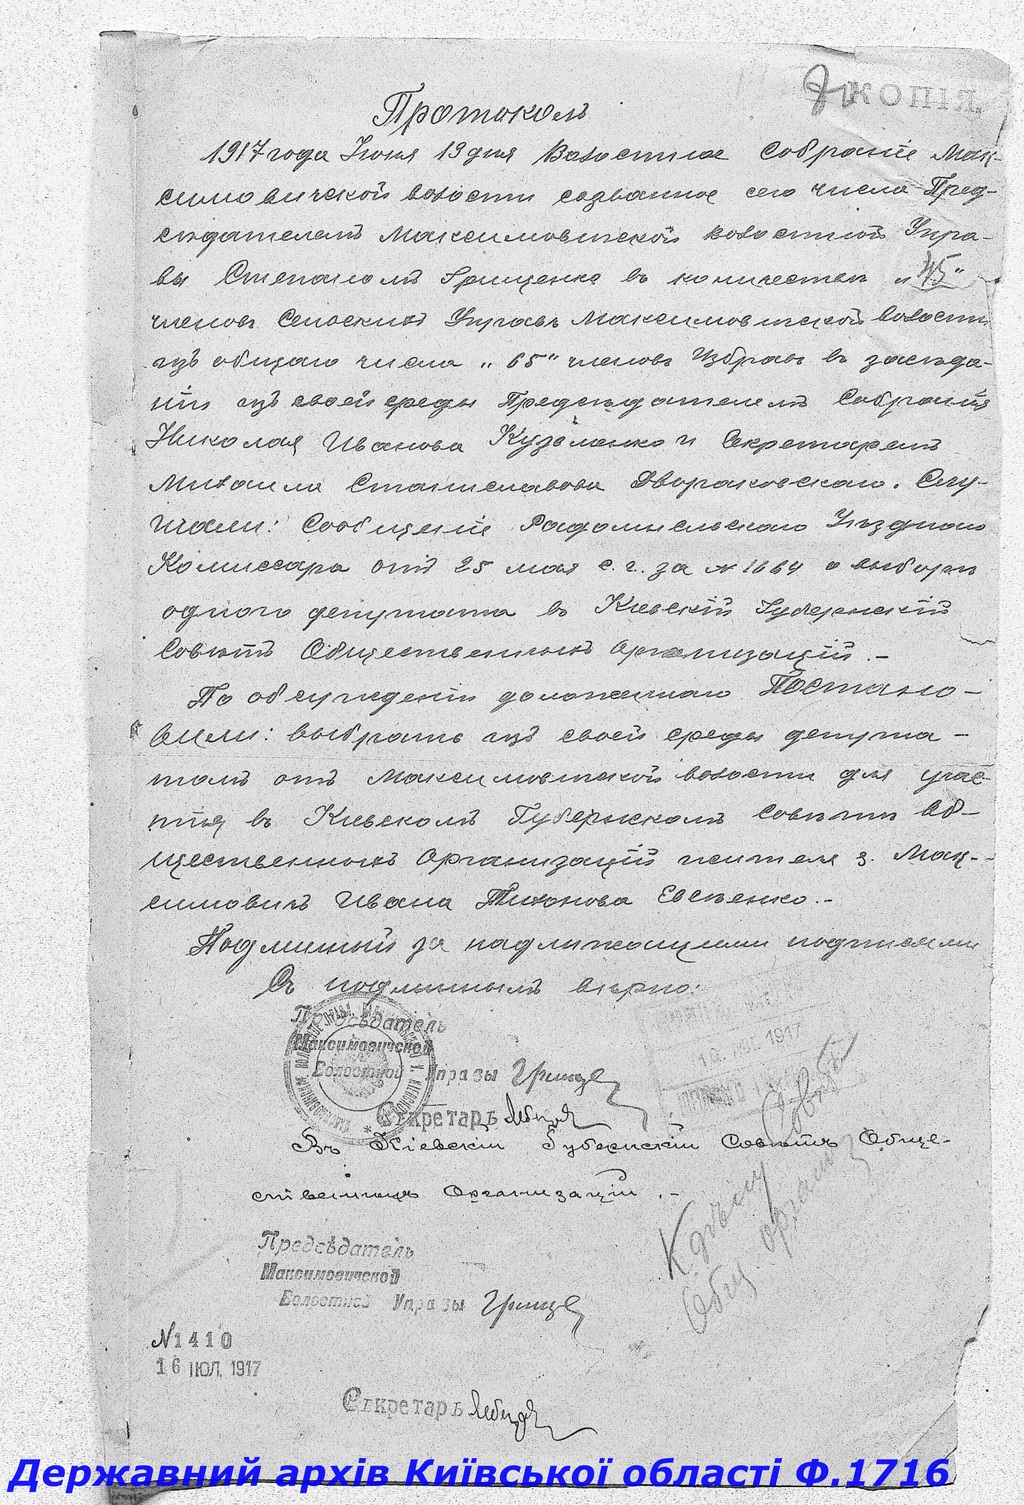 КОПІЯ.
Протоколъ
1917 года Іюня 19 дня Волостное Собраніе Мак-
симовичской волости созванное сего числа Пред-
сѣдателемъ Максимовичской волостной Упра-
вы Степаномъ Грищенко въ количествѣ „45"
членовъ Сельскихъ Управъ Максимовичской волости
изъ общаго числа „65" членовъ Избравъ въ засѣда-
ніи изъ своей среды Предсѣдателемъ Собранія
Николая Иванова Кузьменко и Секретаремъ
Михаила Станиславова Двораковскаго. Слу-
шали: Сообщеніе Радомысльскаго Уѣзднаго
Комиссара отъ 25 мая с. г. за № 1664 о выборѣ
одного депутата въ Кіевскій Губернскій
Совѣтъ Общественныхъ Организацій. -
По обсужденіи доложеннаго Постано-
вили: выбрать изъ своей среды депута-
томъ отъ Максимовичской волости для учас-
тія въ Кіевскомъ Губернскомъ Совѣтѣ Об-
щественныхъ Организацій жителя з. Мак-
симовичъ Ивана Тихонова Евсѣенко. -
Подлинный за надлежащими подписями
Съ подлиннымъ вѣрно:
Предсѣдатель
Максимовичской
Волостной Управы Грище
Секретарь
Въ Кіевскій Губернскій Совѣтъ Обще-
ственныхъ Организацій. -
К дѣлу Совѣта
Общ организ
Предсѣдатель
Максимовичской
Волостной Управы Грище
№ 1410
16 ІЮЛ. 1917
Секретарь
Державний архів Київської області Ф.1716